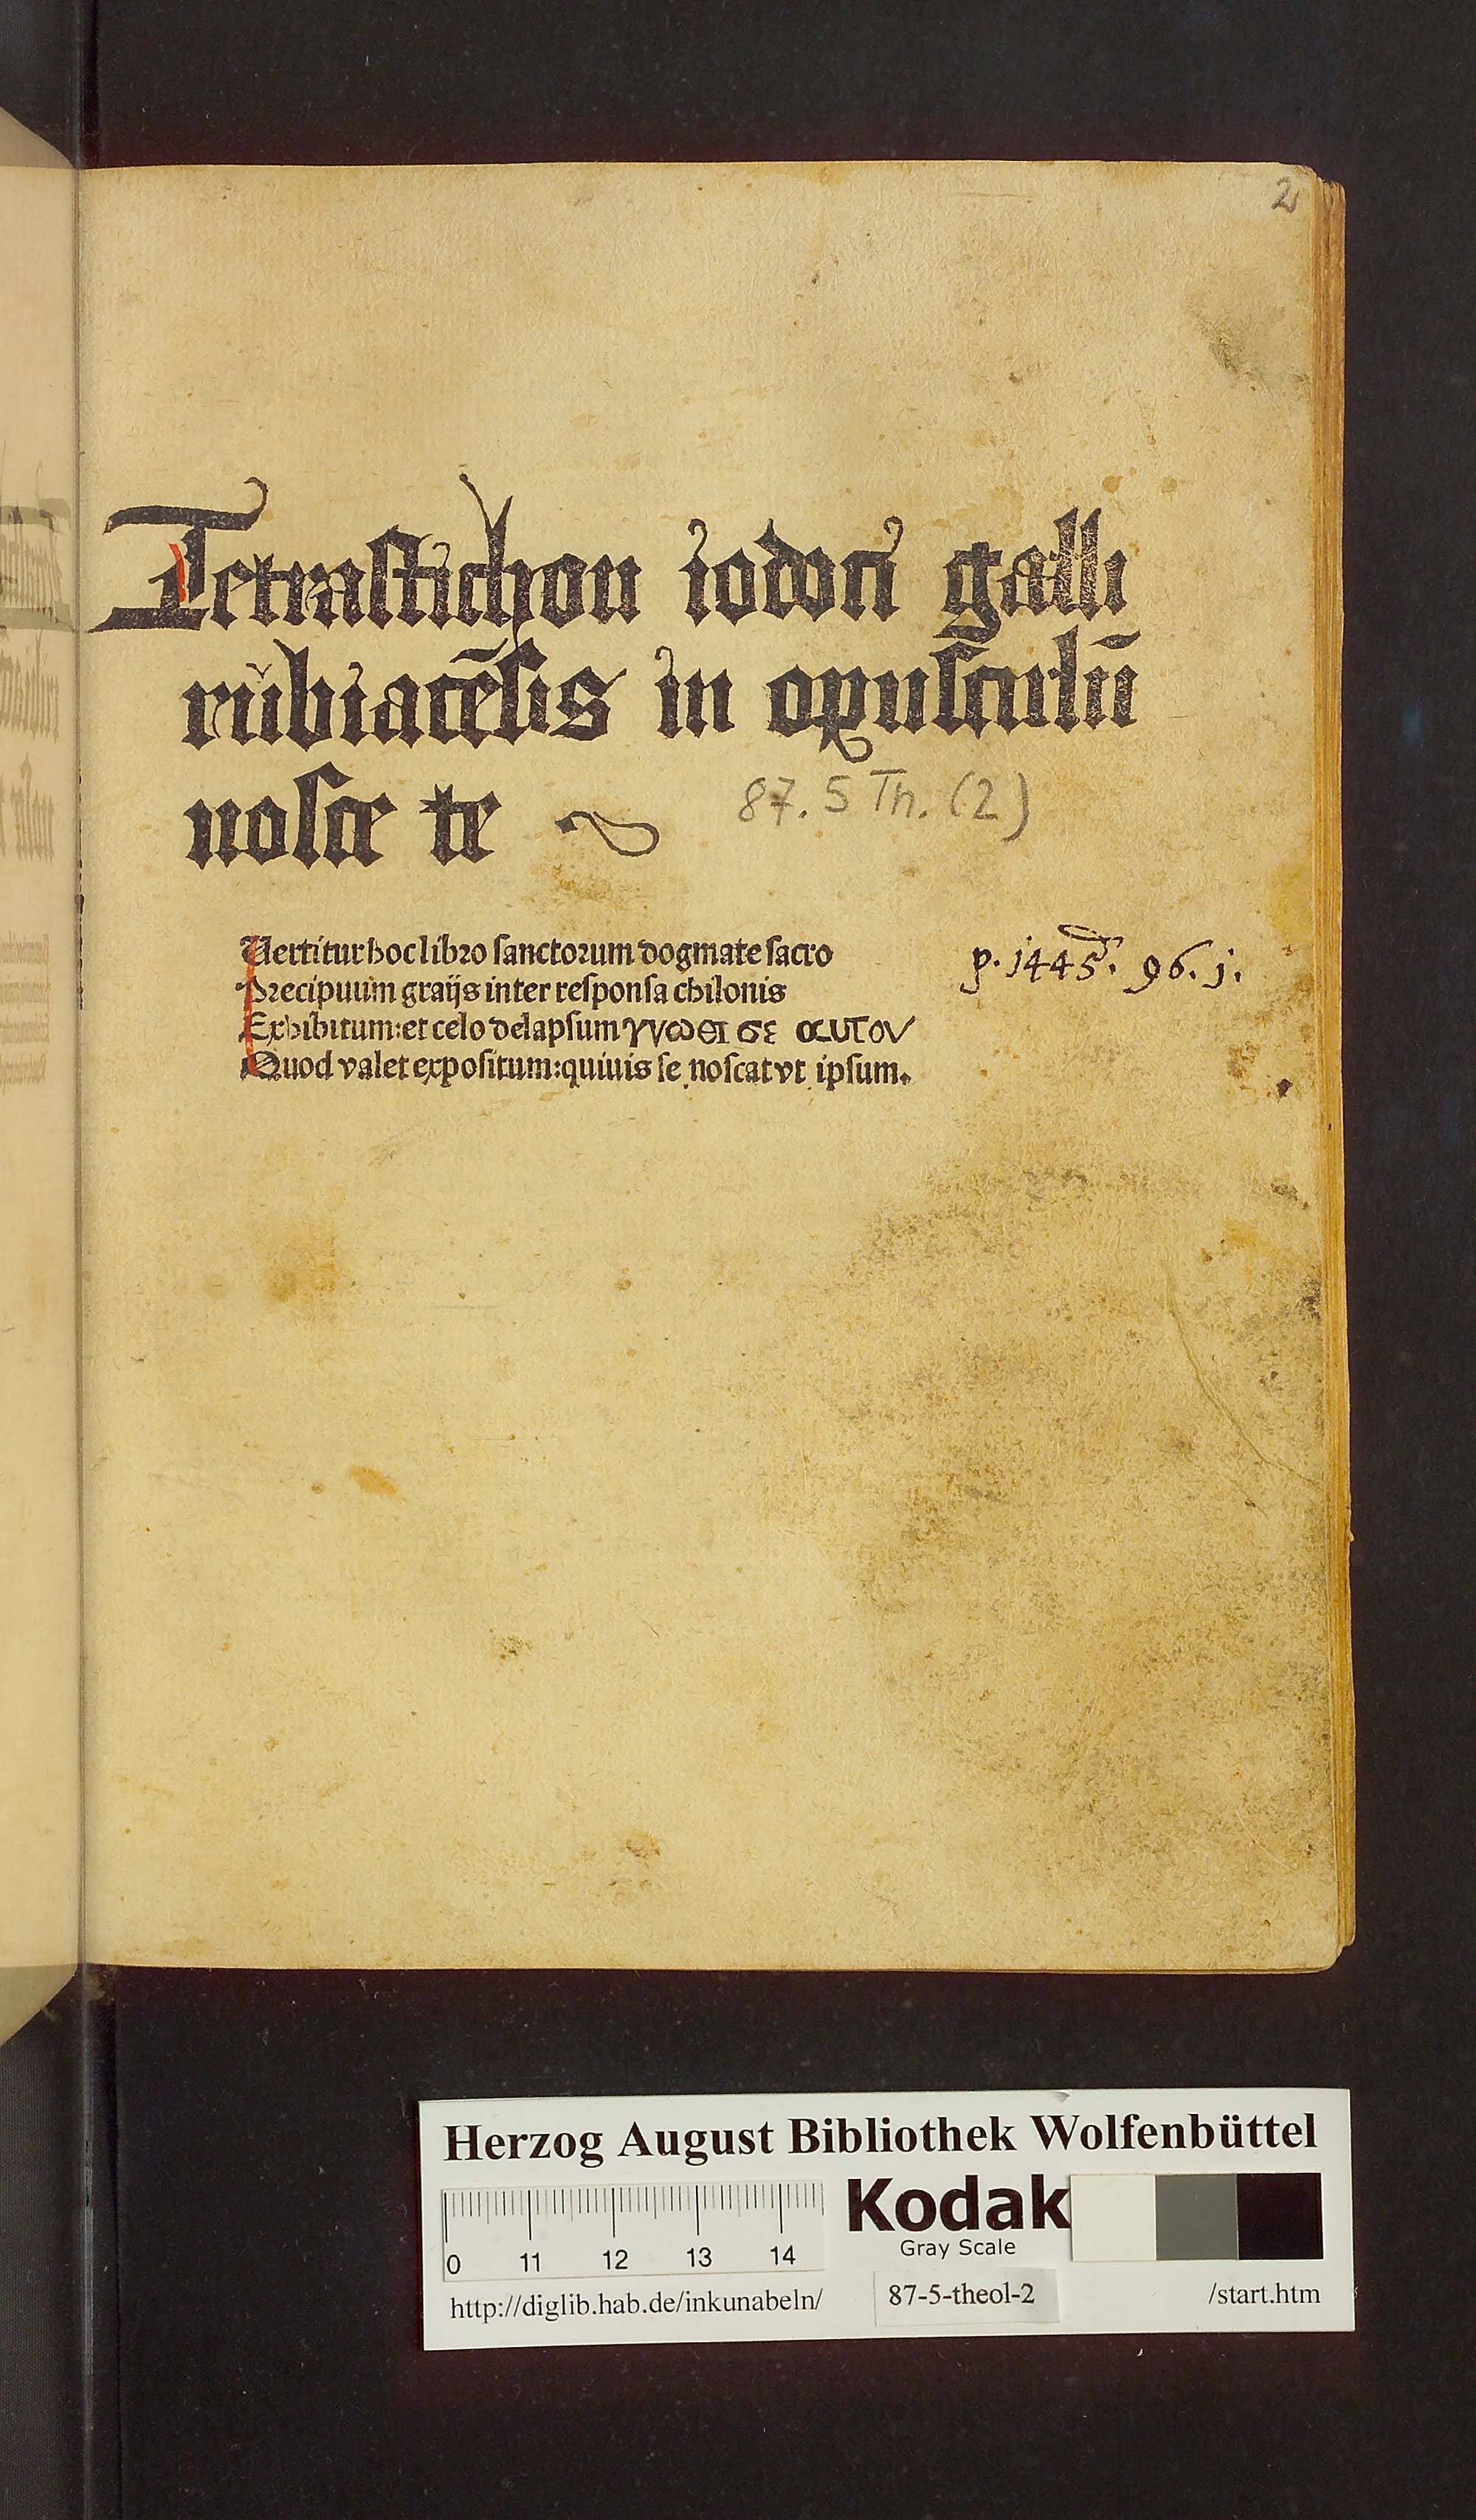 2
Tetrastichon iodoci galli
rubiacēsis in opusculū
nosce te
87. 5 Th. (2)
Uertitur hoc libro sanctorum dogmate sacro
Precipuum graijs inter responsa chilonis
Exhibitum: et celo delapsum γνωθι σε αυτον
Quod valet expositum: quiuis se noscat vt ipsum.
p. 1445. 96. j.
Herzog August Bibliothek Wolfenbüttel
0 11 12 13 14
Kodak
Gray Scale
http://diglib.hab.de/inkunabeln/ 87-5-theol-2 /start.htm